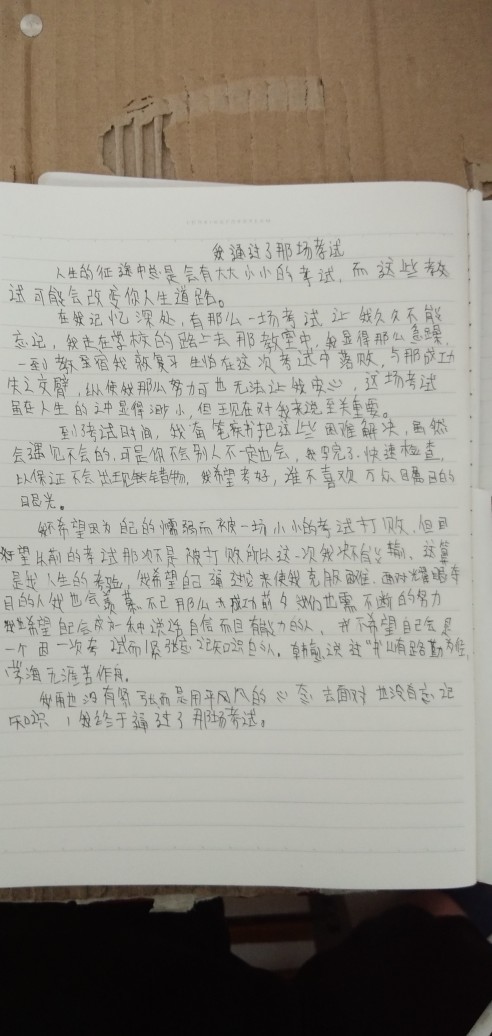 我通过了那场考试
人生的征途中总是会有大大小小的考试,而这些考
试可能会改变你人生道路。
在我记忆深处,有那么一场考试让我久久不能
忘记,我走在学校的路上去那教室中,我显得那么急躁,
一到教室宿我就复习生怕在这次考试中落败,与那成功
失之交臂,纵使我那么努力可也无法让我安心,这场考试
虽在人生的之中显得渺小,但于现在对我来说至关重要。
到了考试时间,我奋笔疾书把这些困难解决,虽然
会遇见不会的,可是你不会别人不一定也会,我写完了,快速检查,
以保证不会出现错物,我希望考好,谁不喜欢万众瞩目的
目光。
我不希望因为自己的懦弱而被一场小小的考试打败,但回
望以前的考试那次不是被打败所以这一次我决不能输、这算
是我人生的考验,我希望自己通过来使我克服困难,面对耀眼夺
目的人我也会羡慕不已那么成功前夕我们也需不断的努力
我也希望自己会成为一种说话自信而且有能力的人,我不希望自己会是
一个因一次考试而紧张忘记知识的人。韩愈说过"书山有路勤为径,
学海无涯苦作舟。
我再也没有紧张而是用平风的心态去面对也没有忘记
知识,我终于通过了那场考试。